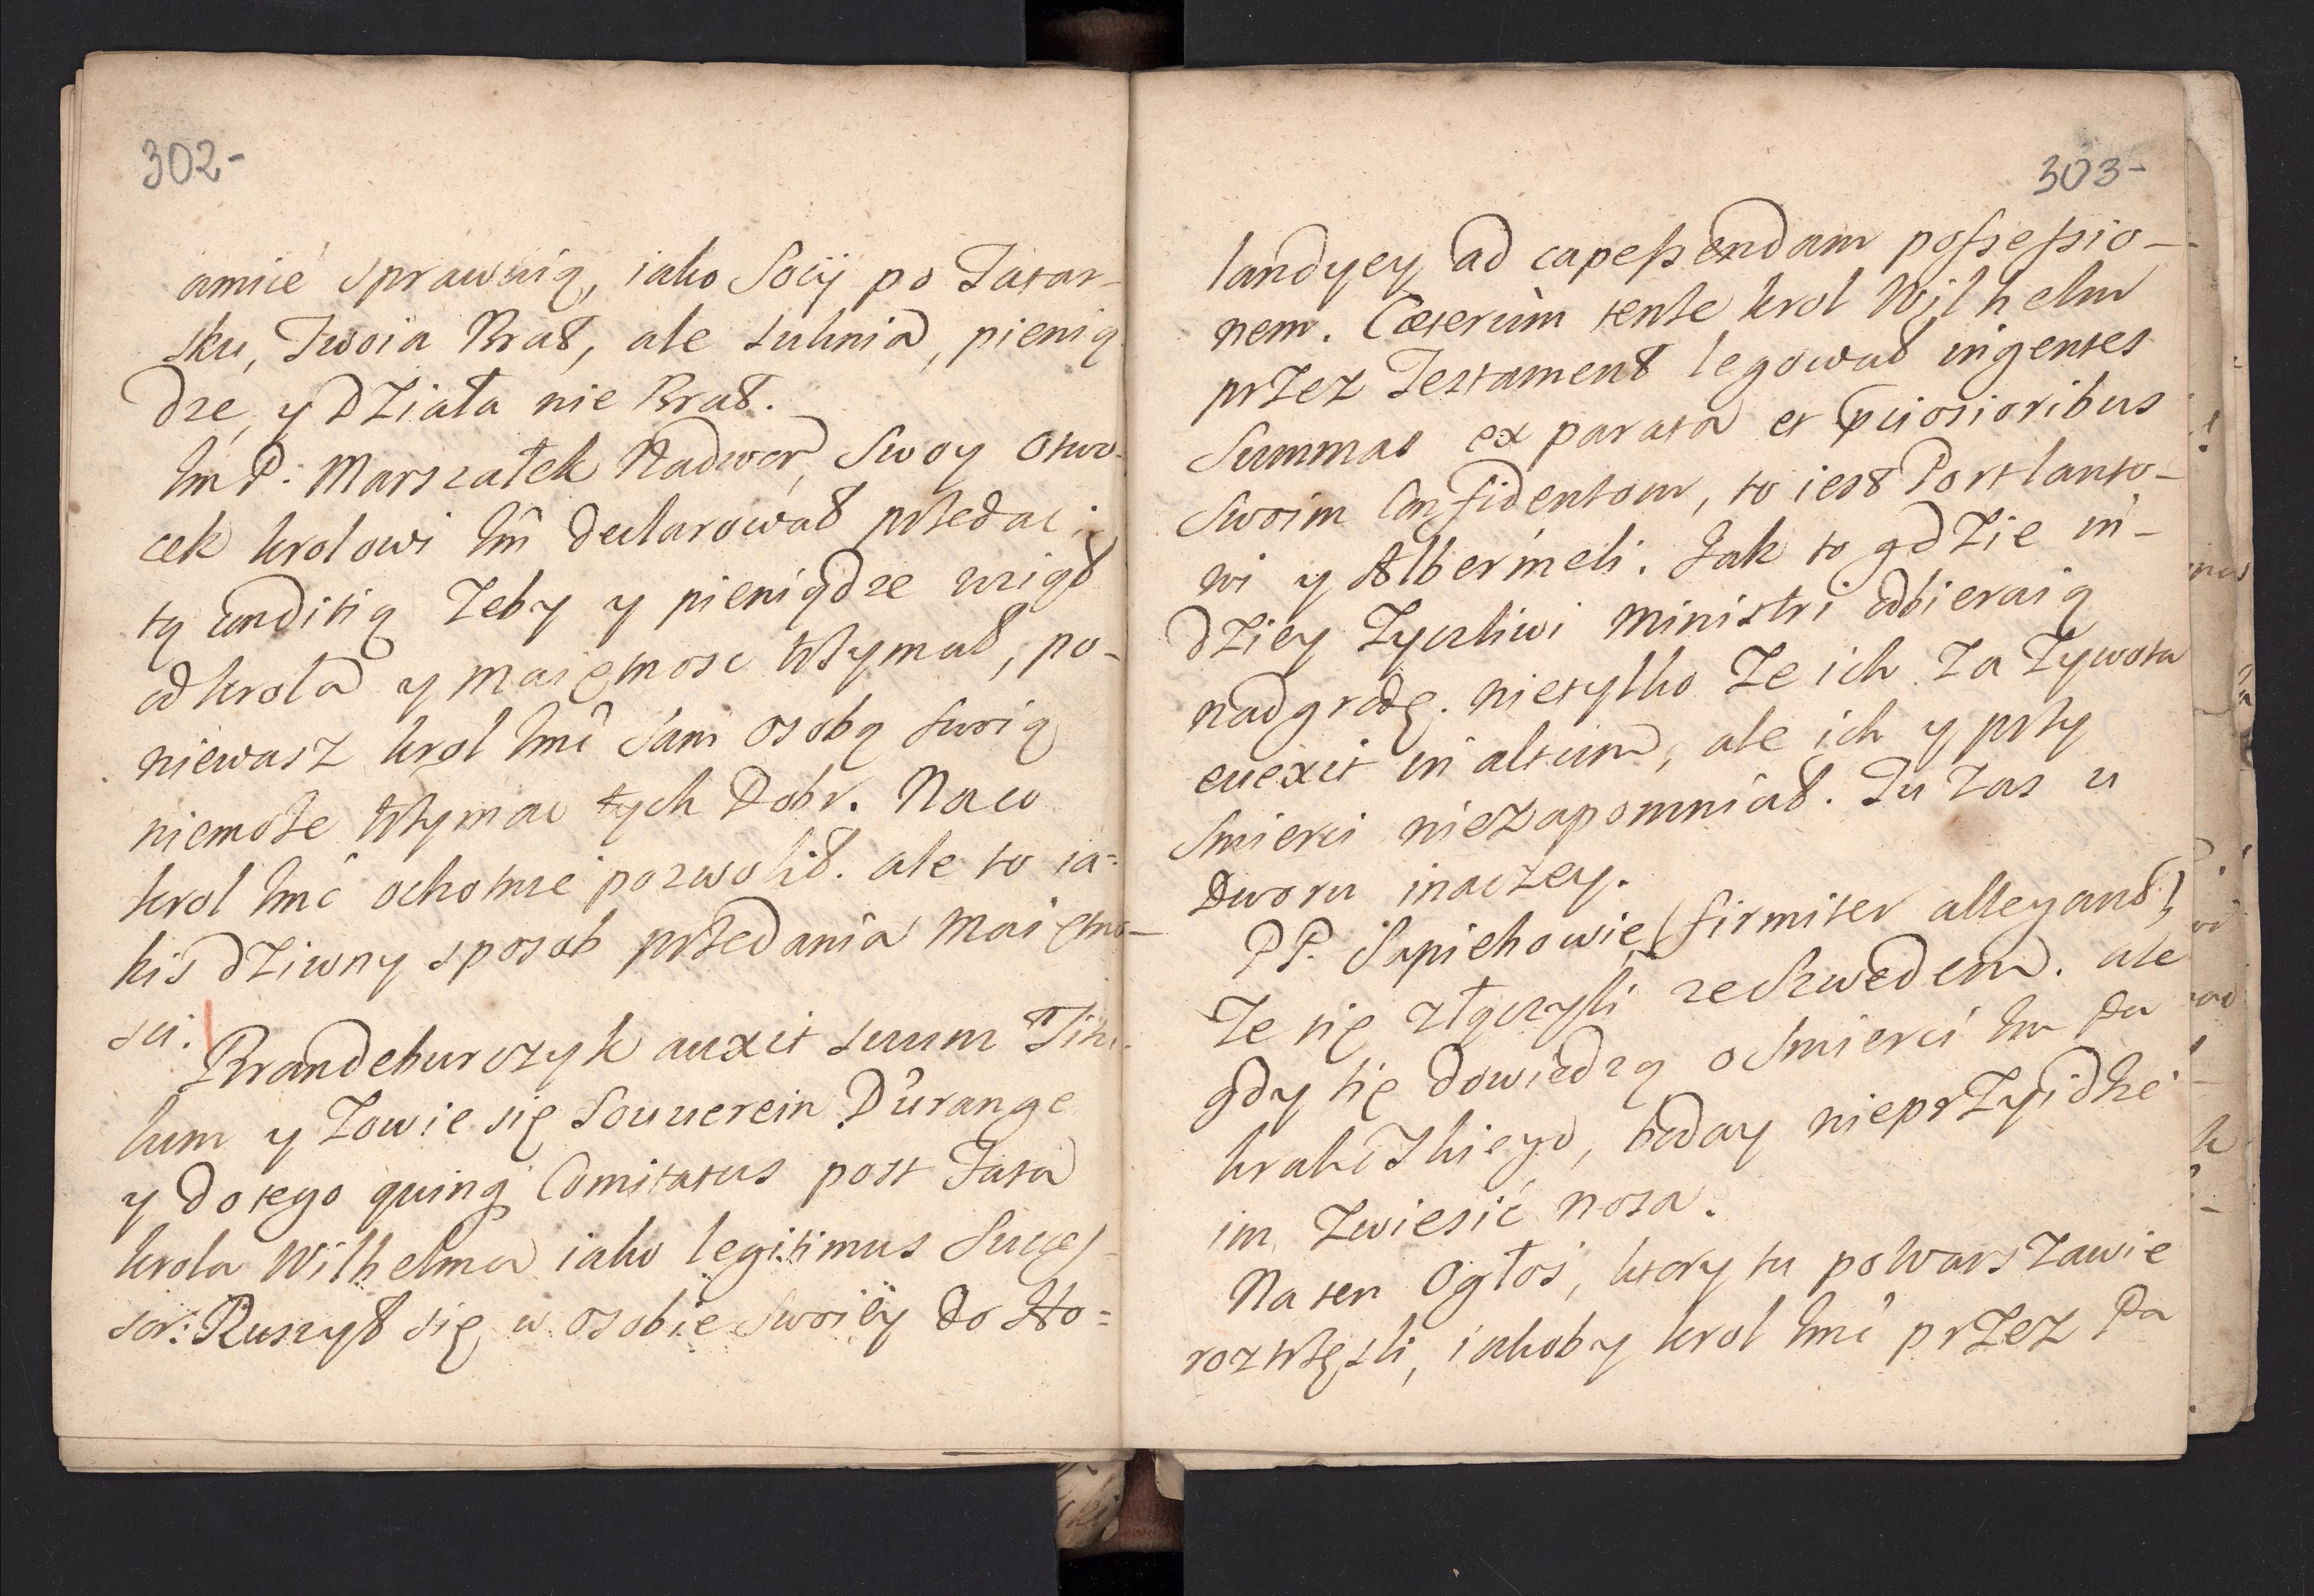 302-
amicé sprawuią, iako Socij po Tatar-
sku, Twoia Brat, ale suknia, pienią
dze, y dziala nie Brat.
Jm P. Marszałek Nadwor, Swoy Otwo-
cek krolowi Jm̂ declarował przedac
tą conditią zeby y pieniądze wziął
od krola y maiętnosc trzymał, po-
niewasz krol Jmĉ sam osobą swoią
niemoże trzymac tych Dobr. Na co
krol Jmć ochotnie pozwolił. ale to ia-
kis dziwny sposob przedania maiętno-
sci.
Brandeburczyk auxit suum Titu-
lum y zowie się Souuerein D'urange
y do tego quinq Comitatus post Fata
krola Wilhelma iako legitimus Succes-
sor: Ruszył się w osobie Swoiey do Ho=
303-
landyey ad capessendam possessio-
nem. Cæterùm tenże krol Wilhelm
przez Testament legował ingentes
Summas ex parata et pciosioribus
Swoim Confidentom, to iest Portlanto-
wi y Albermeli. Jak to gdzie in-
dziey Zyczliwi Ministri odbieraią
nadgrodę. nietylko ze ich za zywota
euexit in altum, ale ich y przy
Smierci niezapomniał. Tu zas u
Dworu inaczey.
PP. Sapiehowie (firmiter allegant)
ze się złączyli ze Szwedem. ale
gdy się dowiedzą o Smierci Jm Pa
krakskiego, boday nieprzyidzie
im zwiesić nosa.
Na ten Ogłos, ktory tu po Warszawie
roztrzęsli, iakoby krol Jmć przez Pa